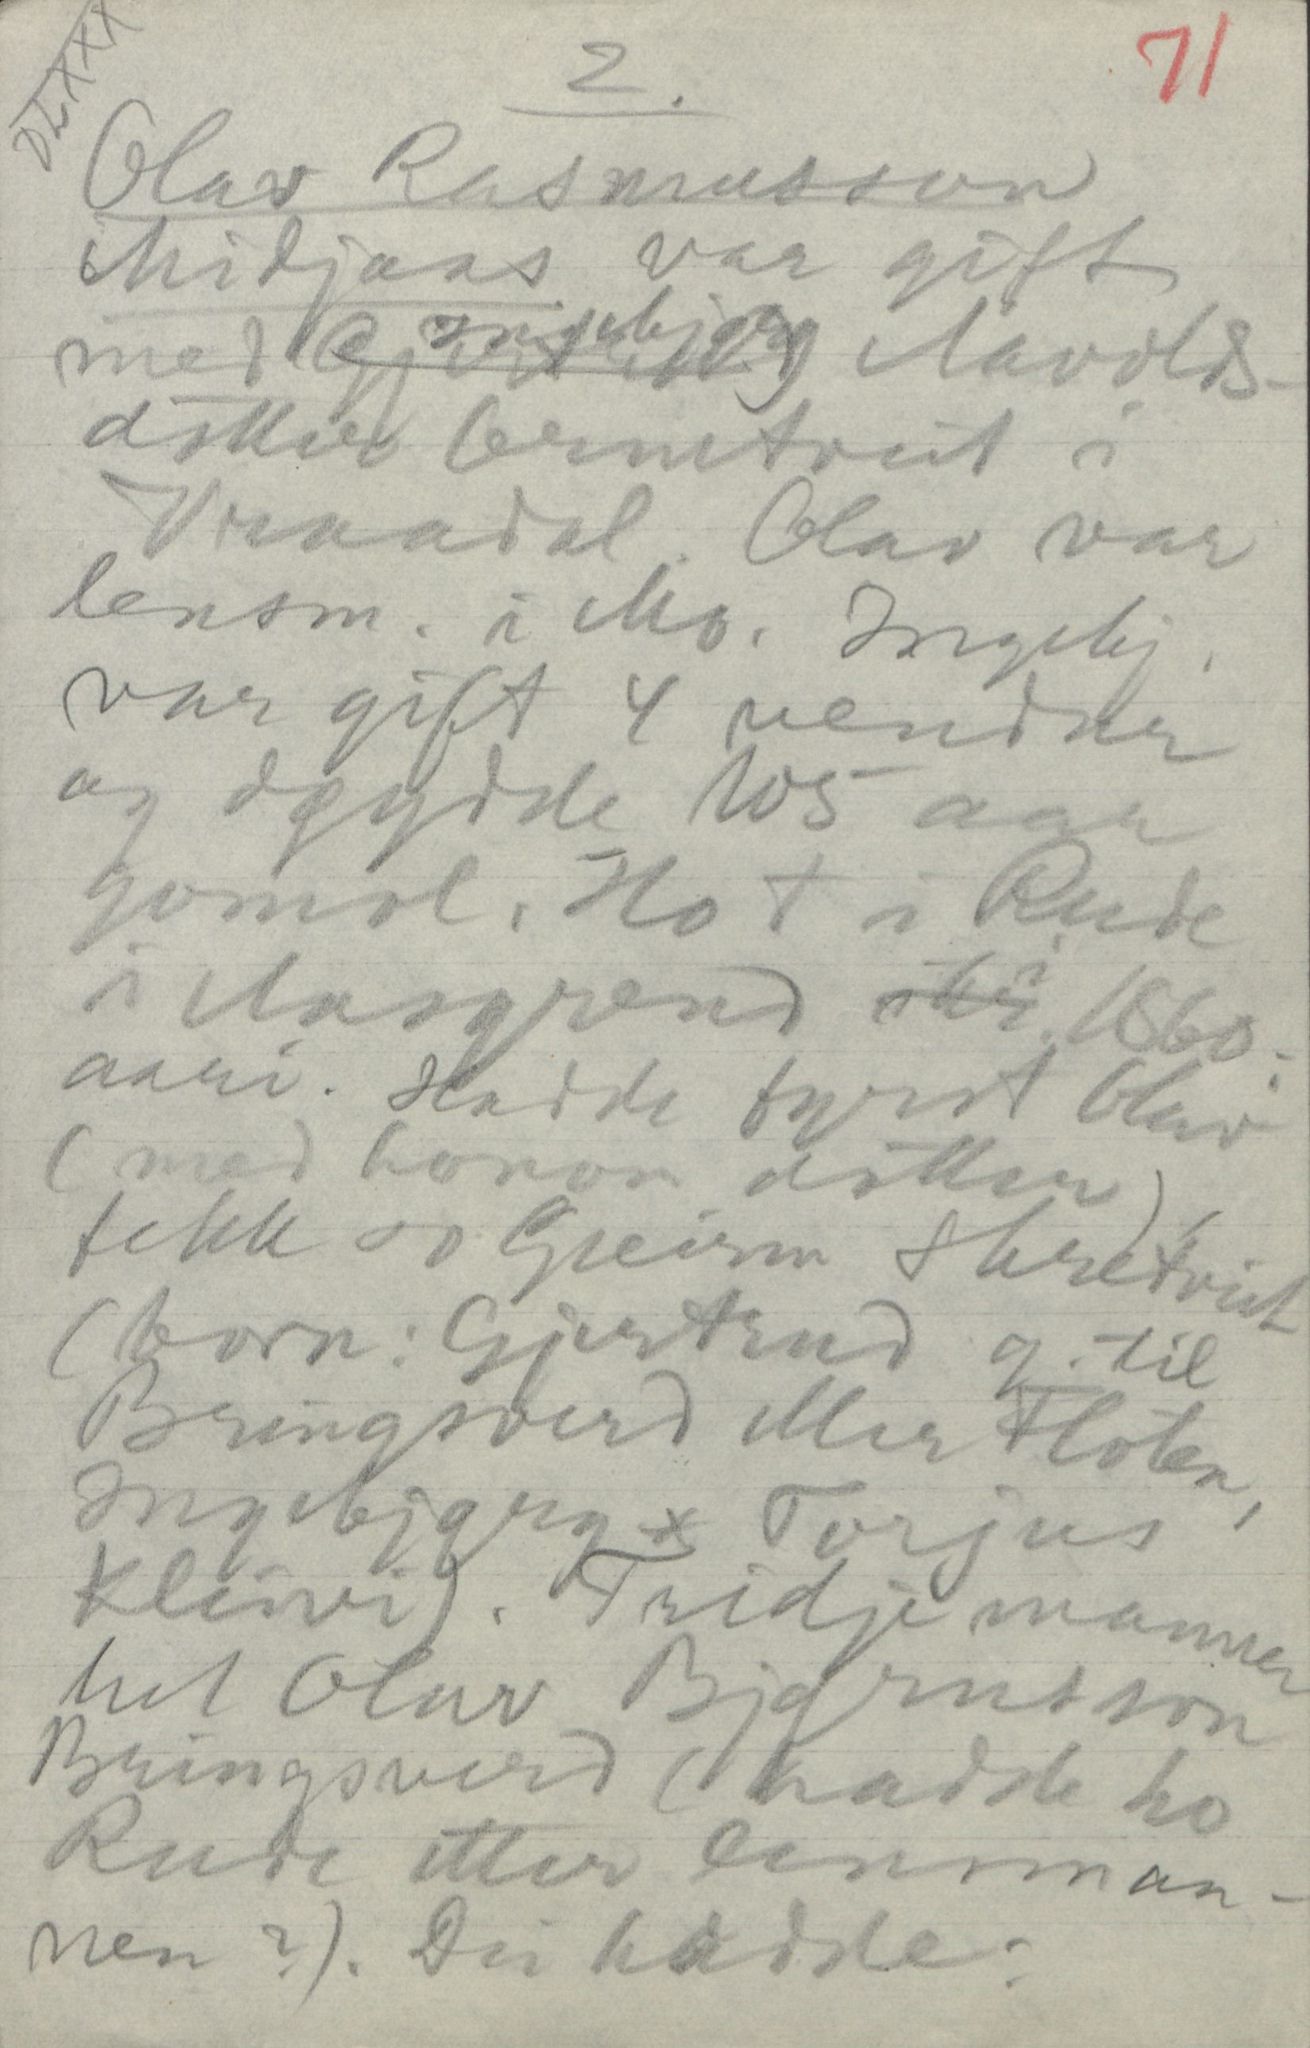 DLXXX
2.
71
Olav Rasmusson
i Midjaas var gift
med Ingebjørg Navolds-
dotter Ormtveit i
Vraadal. Olav var
lensm. i Mo. Ingebj.
var gift 4 vendur
og døydde 105 aar
gomol. Ho † i Rude
i Aasgrend i 1860-
aari. Hadde fyrst Olav
(med honom dotter)
fekk so Greirm Skretveit
(born: Gjertrud g. til
Bringsverd eller Floten,
Ingebjørg x Torjus
Kleivi). Tridje mannen
het Olav Bjørnsson
Bringsverd (hadde ho
Rude etter lensman-
nen?). Dei hadde: